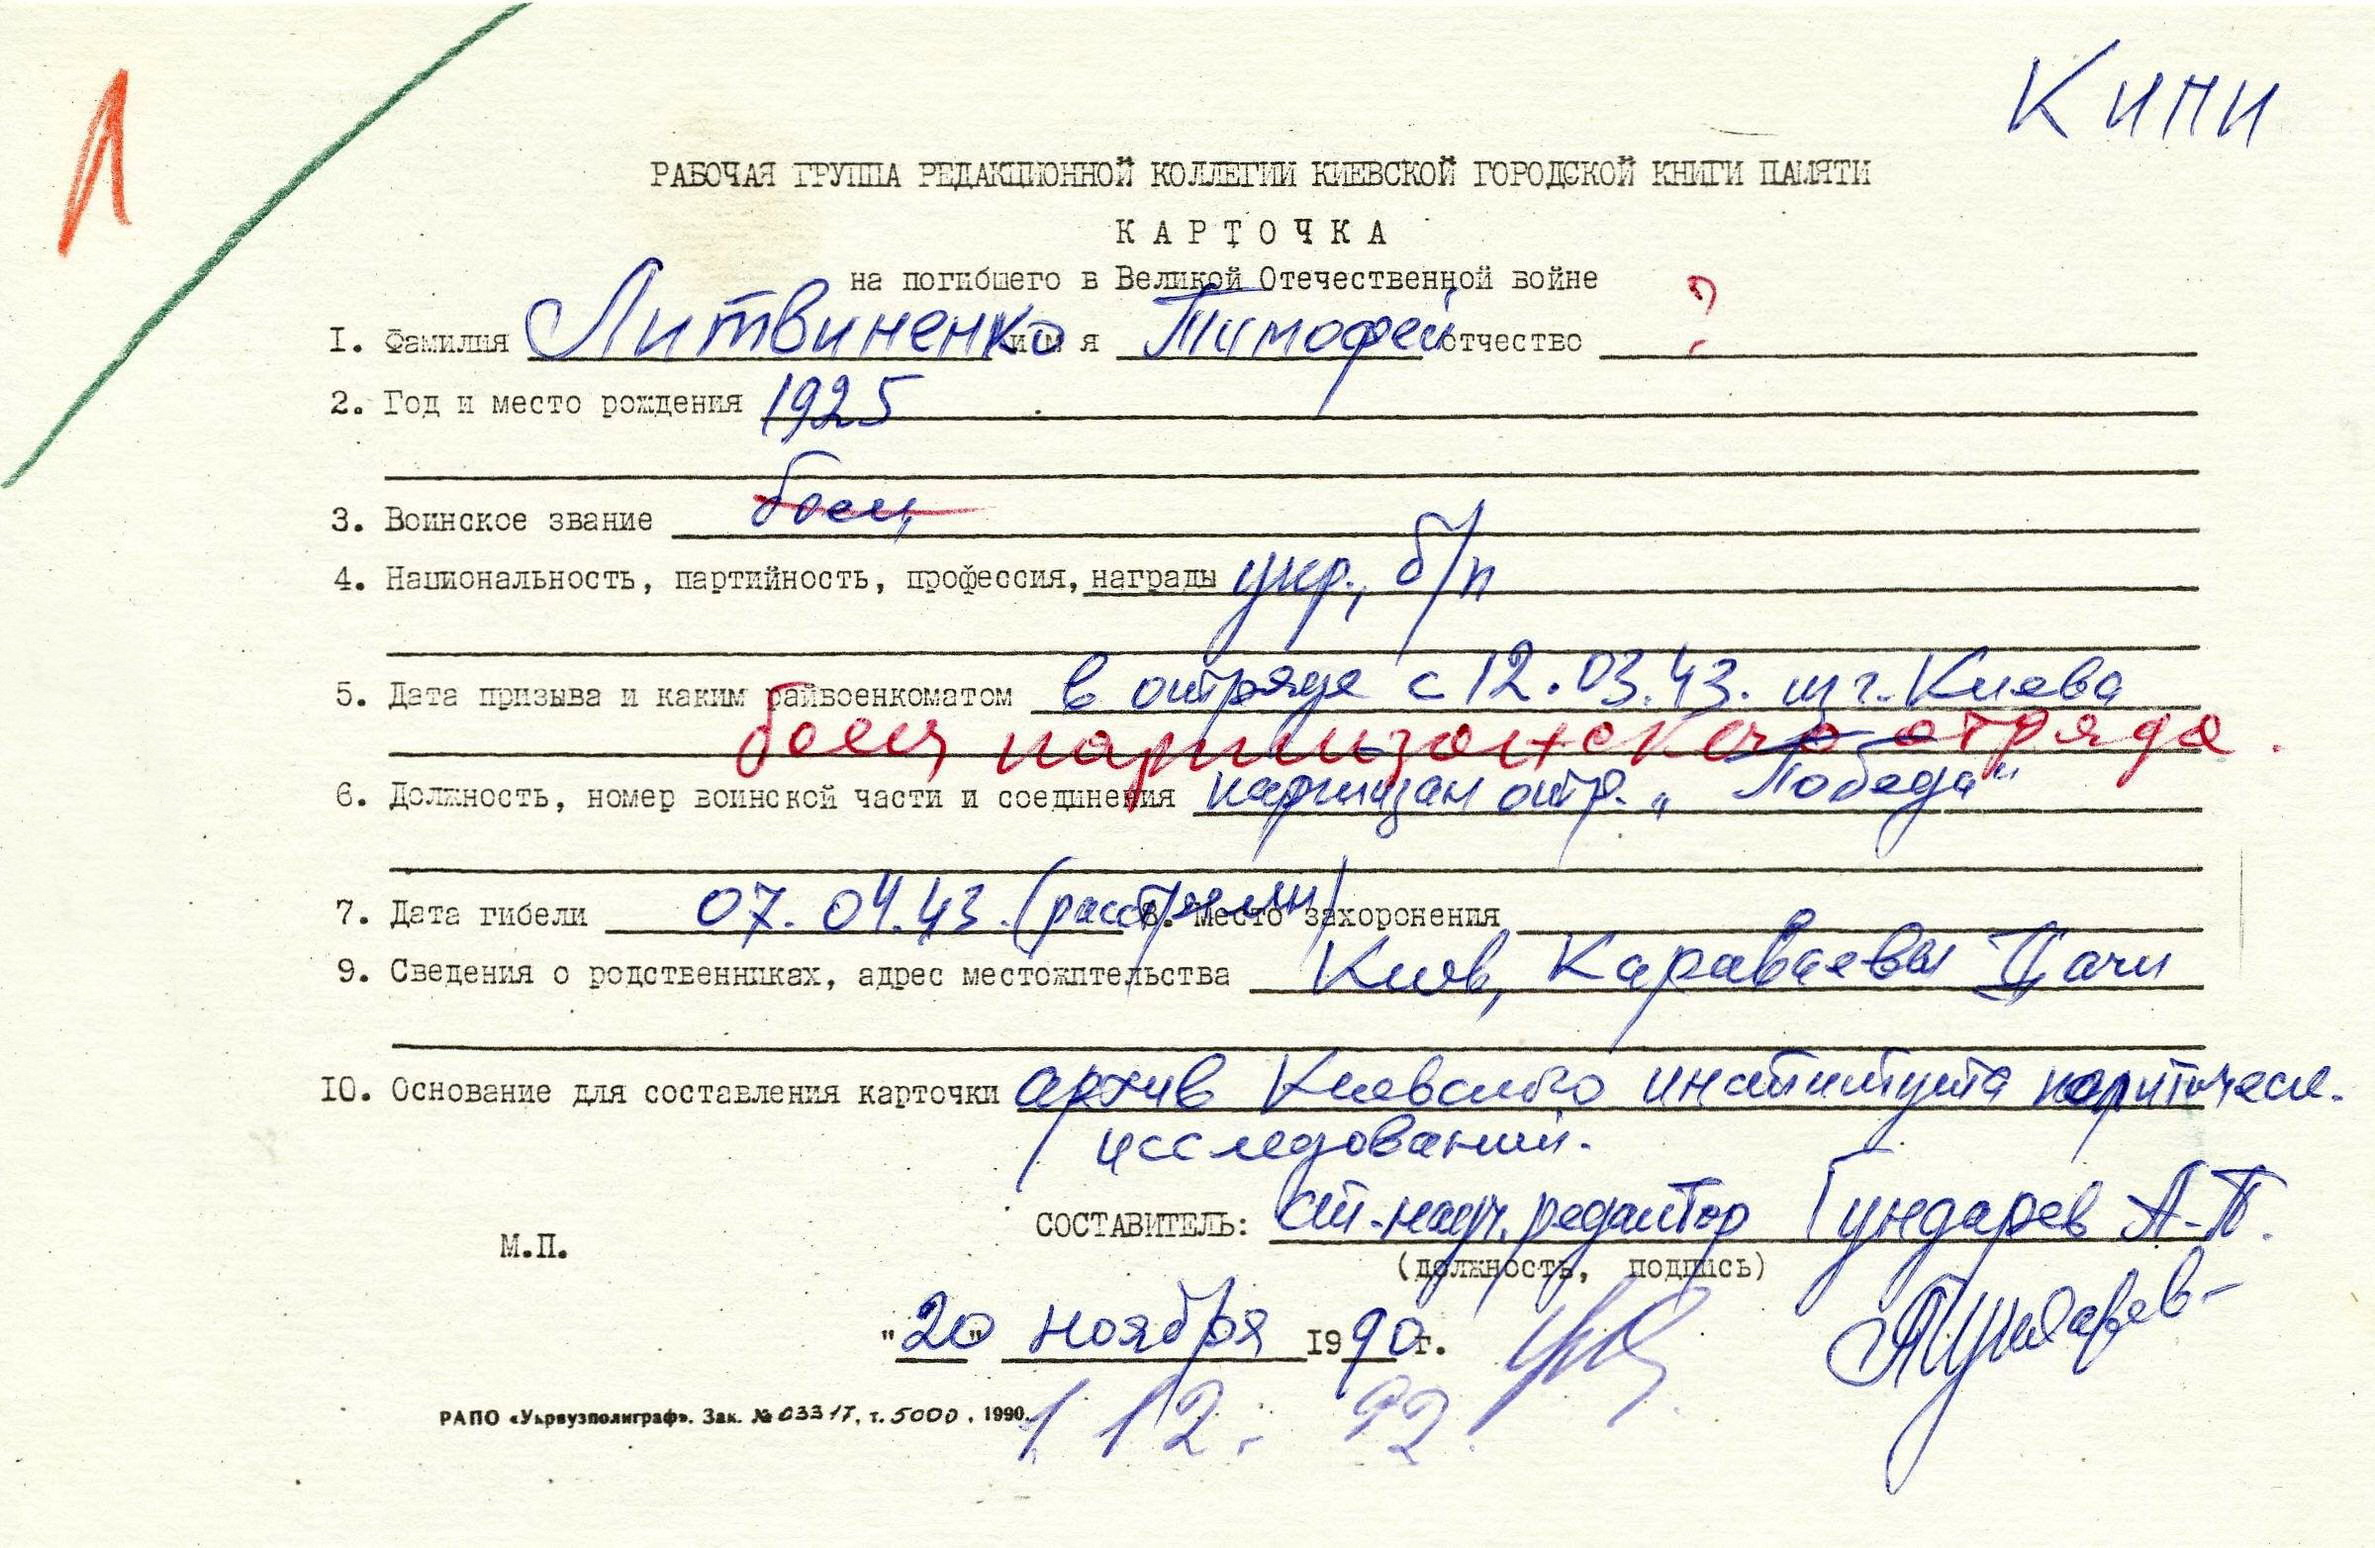 Л
КИПИ
РАБОЧАЯ ГРУППА РЕДАКЦИОННОЙ КОЛЛЕГИИ КИЕВСКОЙ ГОРОДСКОЙ КНИГИ ПАМЯТИ
КАРТОЧКА
на погибшего в Великой Отечественной войне
1. Фамилия Литвиненко имя Тимофей отчество ?
2. Год и место рождения 1925
3. Воинское звание боец
4. Национальность, партийность, профессия, награды укр., б/п
5. Дата призыва и каким райвоенкоматом в отряде с 12.03.43. из г. Киева
боец партизанского отряда.
6. Должность, номер воинской части и соединения партизан отр. „Победа"
7. Дата гибели 07.04.43. (расстрелян) 8. Место захоронения
9. Сведения о родственниках, адрес местожительства Киев, Караваевы Дачи
10. Основание для составления карточки архив Киевского института политическ.
исследований.
СОСТАВИТЕЛЬ: ст. науч. редактор Гундарев А.Т.
М.П.
(должность, подпись)
"20" ноября 1990 г.
РАПО «Укрвузполиграф». Зак. № 0331Т, т. 5000, 1990.
1 12. 92.